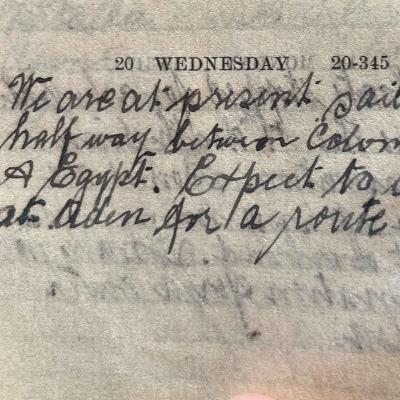 20 WEDNESDAY 20-345
We are at present sail
half way between Colom
& Egypt. Expect to c
at Aden for a route